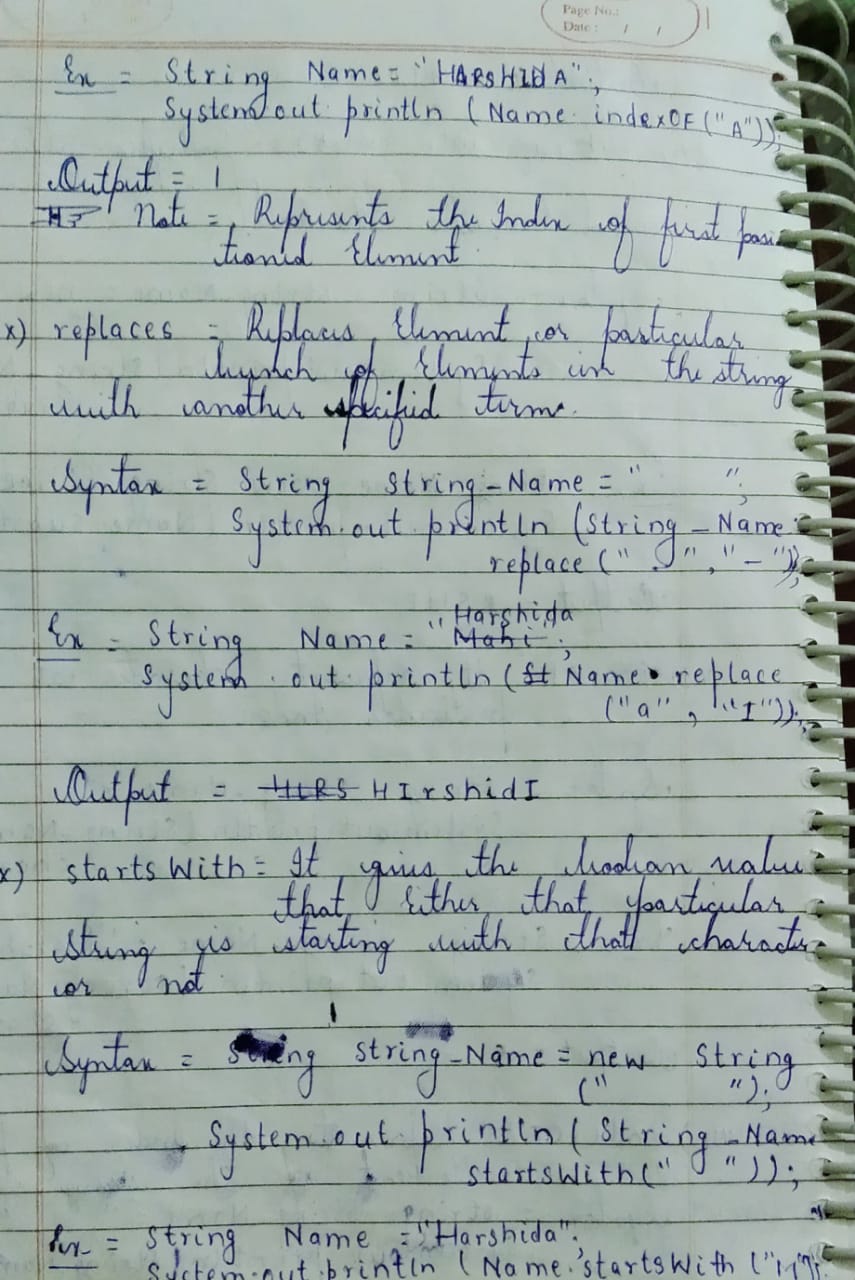 Page No.:
Date: / /
Ex = String Name = "HARSHIDA";
System.out println (Name. indexOF("A"));
Output = 1
Note = Represents the Index of first posi-
tioned Element
x) replaces = Replaces Element or particular
bunch of Elements in the string
with another specified terms.
Syntax = String String-Name = " ";
System.out println (String-Name
replace (" ", "-"));
Ex = String Name = "Harshida
Mahi ;
System.out.println (St Name. replace
("a", "I"));
Output = HIRS HIrshidI
x) starts With = It gives the boolean value
that Either that particular
string is starting with that character
or not
Syntax = String String-Name = new String
(" ");
System.out println (String-Name
startsWith(" "));
Ex = String Name = "Harshida";
System.out.println (Name.startsWith